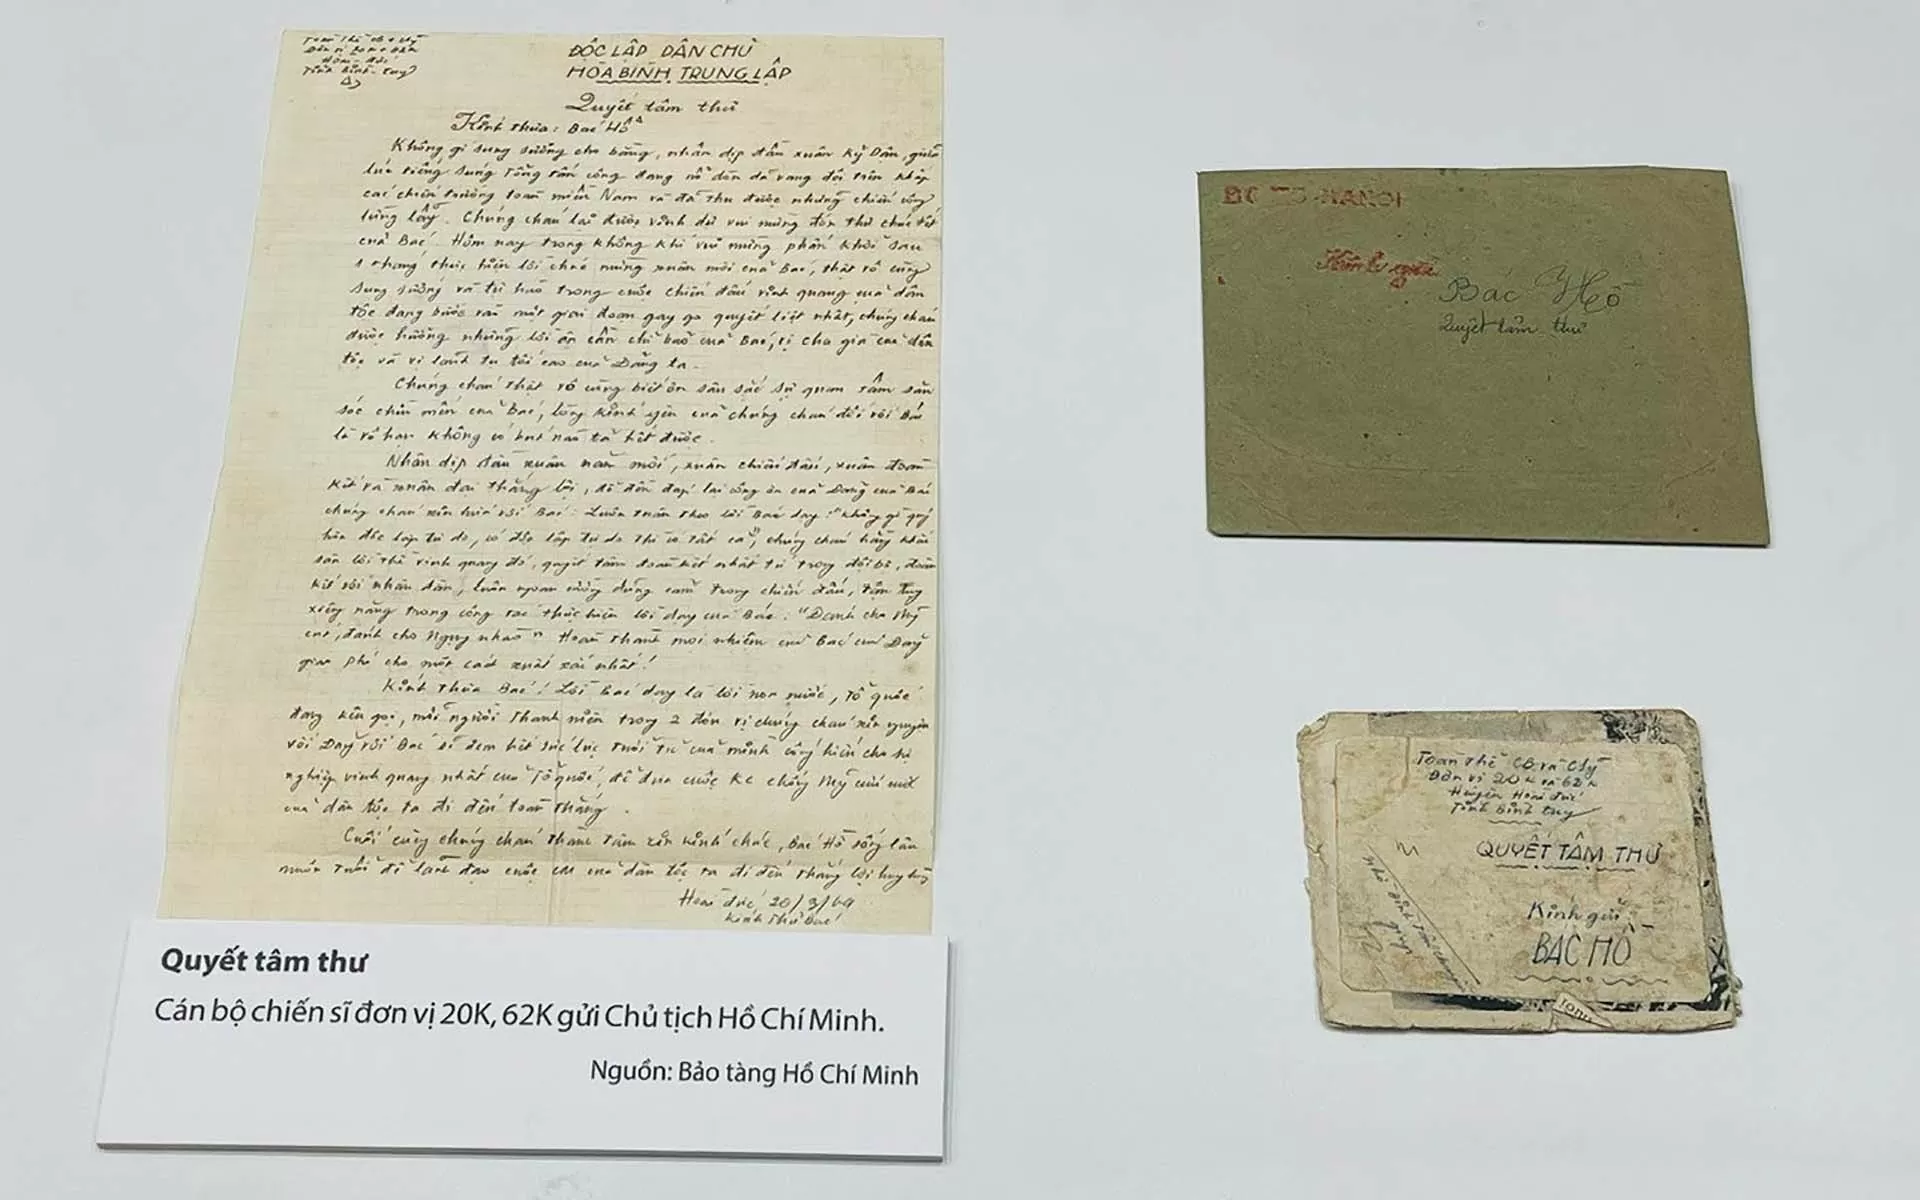 Toàn thể CB và Csỹ
Đơn vị 20K và 62K
Hoài-đức
Tỉnh Bình-Tuy
ĐỘC LẬP DÂN CHỦ
HÒA BÌNH TRUNG LẬP
Quyết tâm thư
Kính thưa: Bác Hồ
Không gì sung sướng cho bằng, nhân dịp đầu xuân Kỷ Dậu, giữa
lúc tiếng súng tổng tấn công đang nổ dồn dã vang dội trên khắp
các chiến trường toàn miền Nam và đã thu được những chiến công
lừng lẫy. Chúng cháu lại được vinh dự vui mừng đón thư chúc tết
của Bác. Hôm nay trong không khí vui mừng phấn khởi sau
1 tháng thực hiện lời chúc mừng xuân mới của Bác, thật vô cùng
sung sướng và tự hào trong cuộc chiến đấu vinh quang của dân
tộc đang bước vào một giai đoạn gay go quyết liệt nhất, chúng cháu
được hưởng những lời ân cần chỉ bảo của Bác, vị cha già của dân
tộc và vị lãnh tụ tối cao của Đảng ta.
Chúng cháu thật vô cùng biết ơn sâu sắc sự quan tâm săn
sóc chìu mến của Bác, lòng kính yêu của chúng cháu đối với Bác
là vô hạn không có bút nào tả hết được.
Nhân dịp đầu xuân năm mới, xuân chiến đấu, xuân đoàn
kết và xuân đại thắng lợi, để đền đáp lại công ơn của Đảng của Bác
chúng cháu xin hứa với Bác: Luôn tuân theo lời Bác dạy: "Không gì quý
hơn độc lập tự do, có độc lập tự do thì có tất cả", chúng cháu hằng khắc
sâu lời thề vinh quang đó, quyết tâm đoàn kết nhất trí trong đội bộ, đoàn
kết với nhân dân, luôn ngoan cường dũng cảm trong chiến đấu, tận tụy
xiêng năng trong công tác thực hiện lời dạy của Bác: "Đánh cho Mỹ
cút, đánh cho Ngụy nhào" Hoàn thành mọi nhiệm của Bác của Đảng
giao phó cho một cách xuất sắc nhất!
Kính thưa Bác! Lời Bác dạy là lời non nước, Tổ quốc
đang kêu gọi, mỗi người thanh niên trong 2 đơn vị chúng cháu xin nguyện
với Đảng với Bác sẽ đem hết sức lực tuổi trẻ của mình cống hiến cho sự
nghiệp vinh quang nhất của Tổ quốc, để đưa cuộc KC chống Mỹ cứu nước
của dân tộc ta đi đến toàn thắng.
Cuối cùng chúng cháu thành tâm xin kính chúc, Bác Hồ sống lâu
muôn tuổi để lãnh đạo cuộc CM của dân tộc ta đi đến thắng lợi
Hoài đức 20/3/69
Kính thư Bác!
Quyết tâm thư
Cán bộ chiến sĩ đơn vị 20K, 62K gửi Chủ tịch Hồ Chí Minh.
Nguồn: Bảo tàng Hồ Chí Minh
HANOI
Kính gửi
Bác Hồ
Quyết tâm thư
Toàn thể CB và CSỹ
Đơn vị 20K và 62K
Huyện Hoài đức
Tỉnh Bình Tuy
QUYẾT TÂM THƯ
Kính gửi
BÁC HỒ